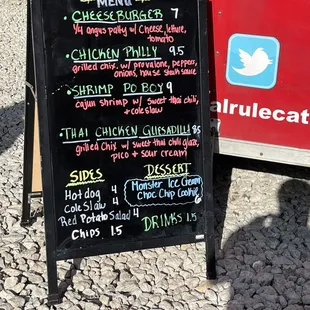 MENU
· CHEESEBURGER 7
1/4 angus patty w/ Cheese, lettuce,
tomato
· CHICKEN PHILLY 9.5
grilled chix. w/ provalone, peppers,
onions, house steak sauce
· SHRIMP PO BOY 9
cajun shrimp w/ sweet thai chili,
+ coleslaw
· THAI CHICKEN QUESADILLA 9.5
Grilled Chix w/ sweet thai chili glaze,
pico + sour cream
SIDES
Hot dog 4
Cole Slaw 4
Red Potato Salad 4
CHIPS 1.5
DESSERT
Monster Ice Cream
Choc Chip Cookie
6
DRINKS 1.5
alrulecat